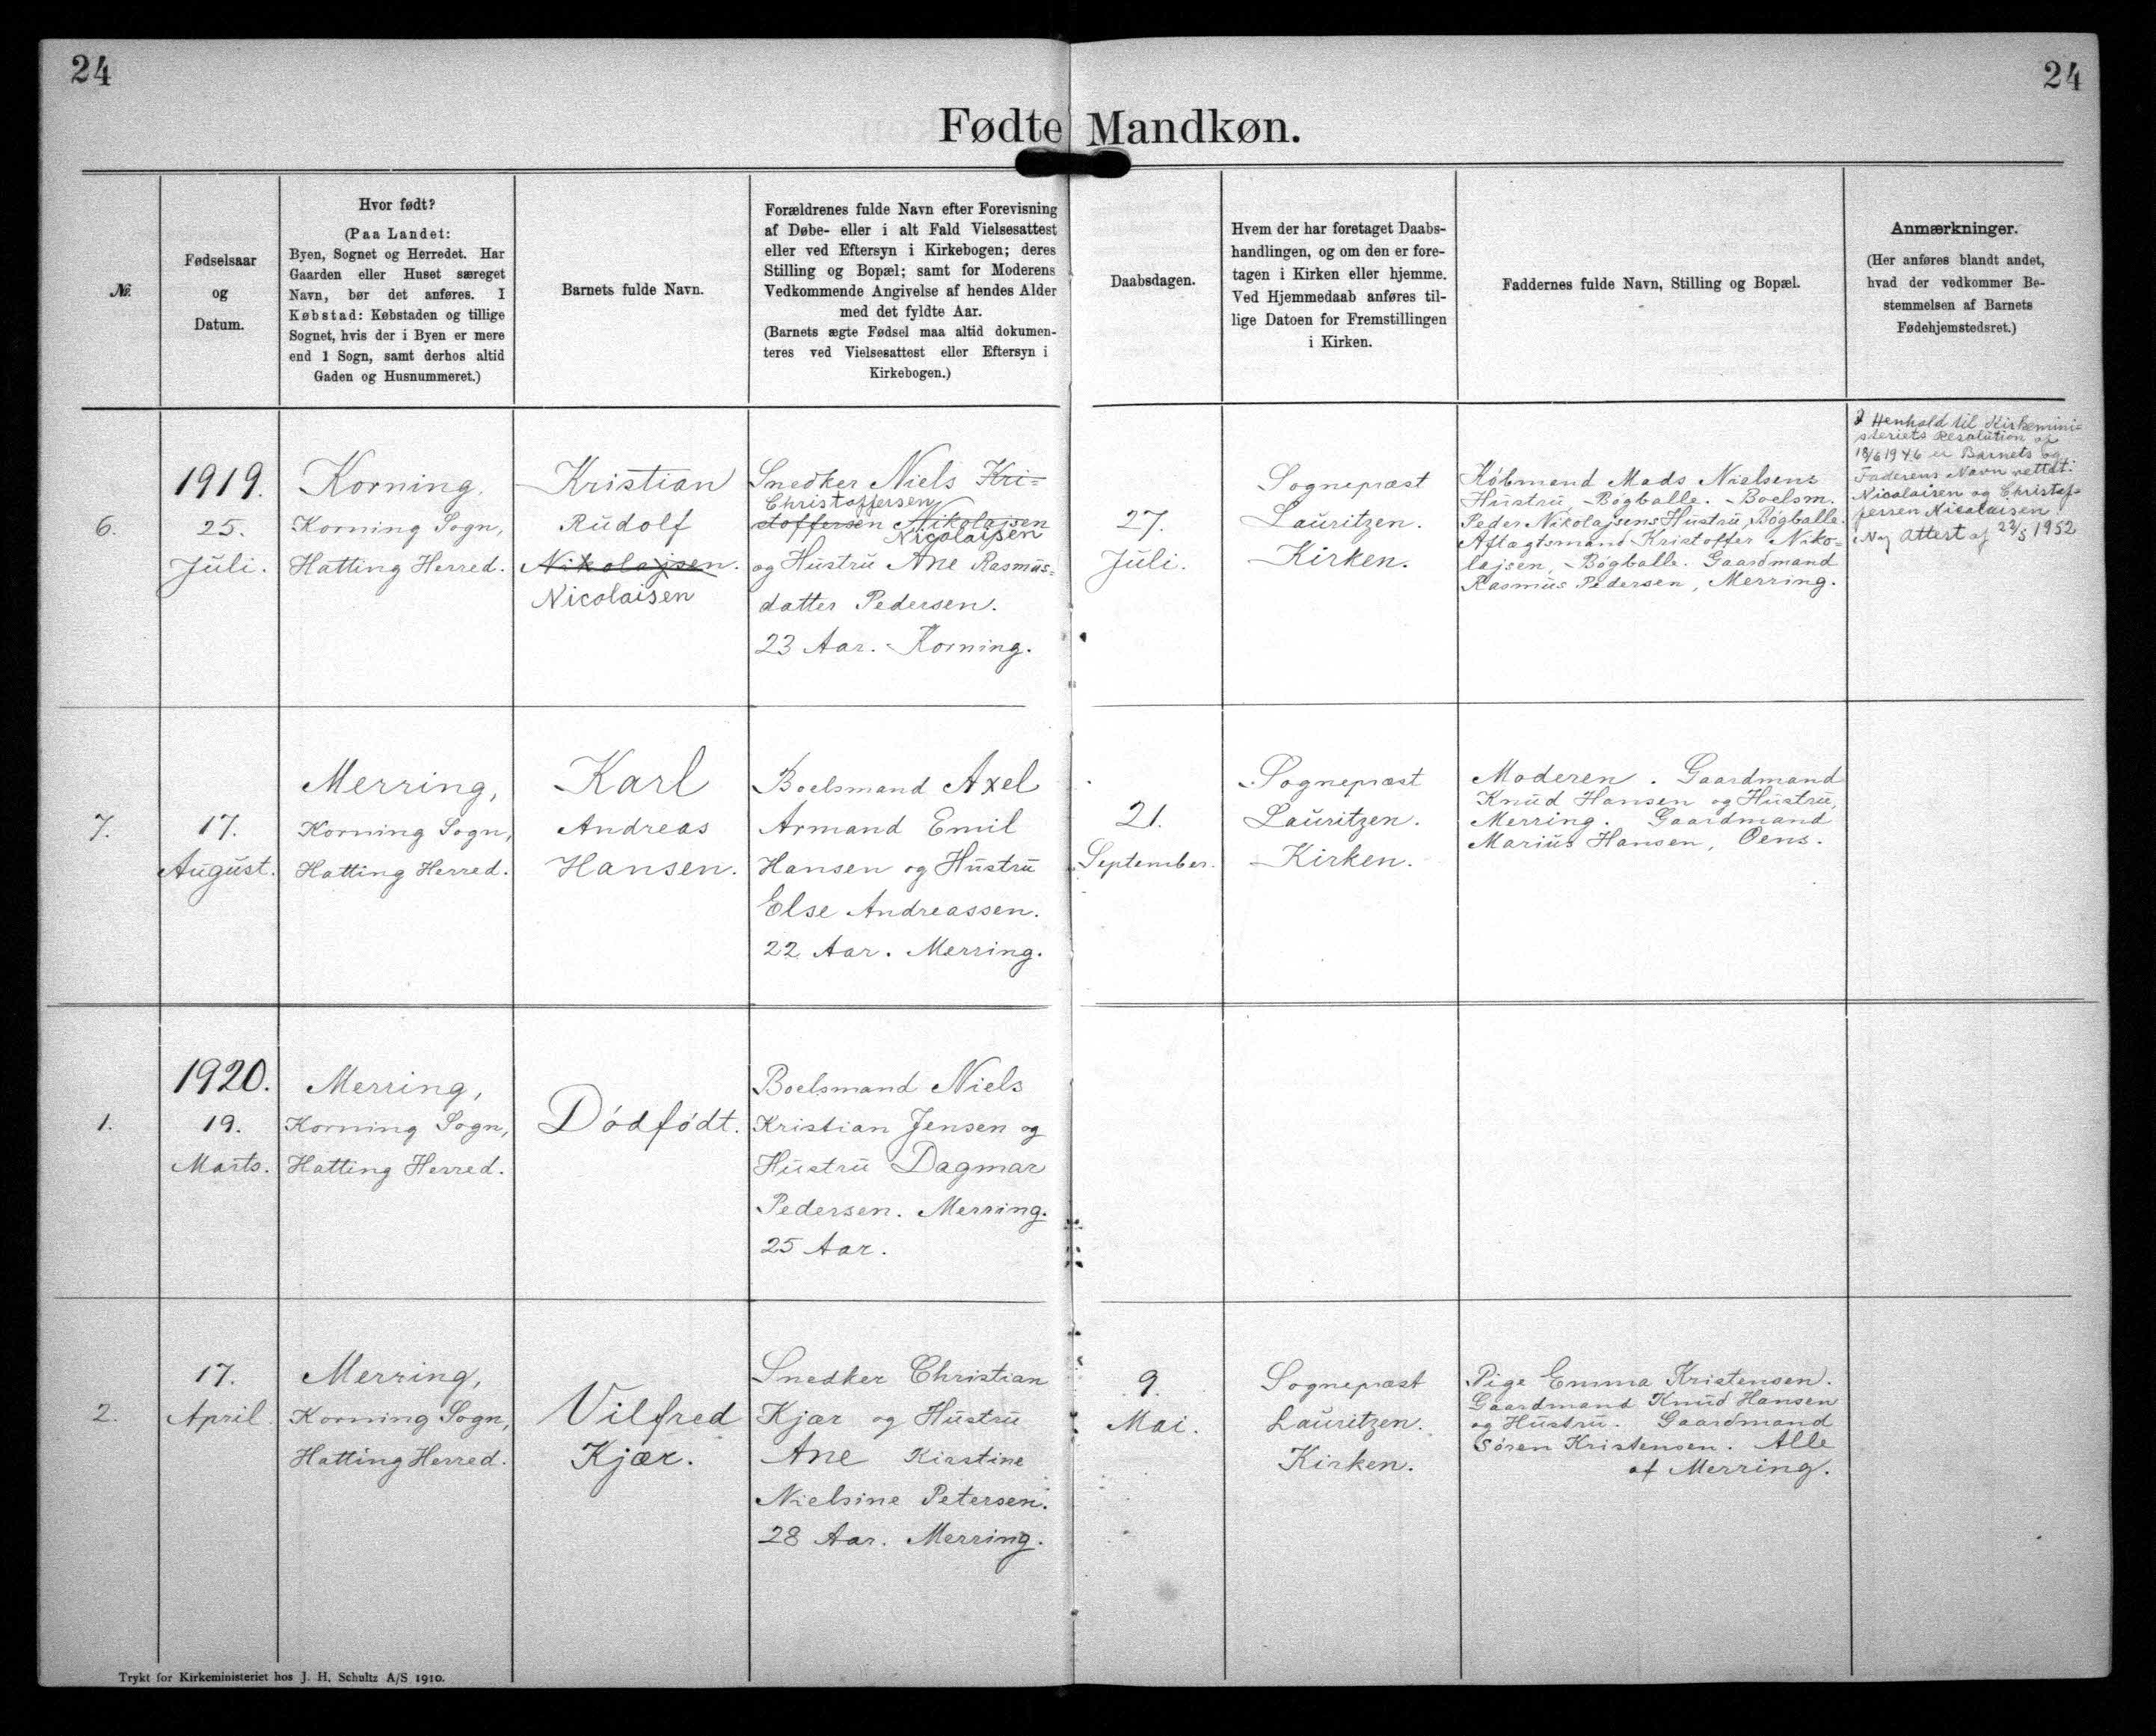 24
24
Fødte Mandkøn.
№.
Fødselsaar
og
Datum.
Hvor født?
(Paa Landet:
Byen, Sognet og Herredet. Har
Gaarden eller Huset særeget
Navn, bør det anføres. I
Købstad: Købstaden og tillige
Sognet, hvis der i Byen er mere
end 1 Sogn, samt derhos altid
Gaden og Husnummeret.)
Barnets fulde Navn.
Forældrenes fulde Navn efter Forevisning
af Døbe- eller i alt Fald Vielsesattest
eller ved Eftersyn i Kirkebogen; deres
Stilling og Bopæl; samt for Moderens
Vedkommende Angivelse af hendes Alder
med det fyldte Aar.
(Barnets ægte Fødsel maa altid dokumen-
teres ved Vielsesattest eller Eftersyn i
Kirkebogen.)
Daabsdagen.
Hvem der har foretaget Daabs-
handlingen, og om den er fore-
tagen i Kirken eller hjemme.
Ved Hjemmedaab anføres til-
lige Datoen for Fremstillingen
i Kirken.
Faddernes fulde Navn, Stilling og Bopæl.
Anmærkninger.
(Her anføres blandt andet,
hvad der vedkommer Be-
stemmelsen af Barnets
Fødehjemstedsret.)
6.
1919.
25.
Juli.
Korning,
Korning Sogn,
Hatting Herred.
Kristian
Rudolf
Nikolajsen.
Nicolaisen
Snedker Niels Kri=
Christoffersen
stoffersen Nikolajsen
Nicolaisen
og Hustru Ane Rasmus=
datter Pedersen.
23 Aar. - Korning.
27.
Juli.
Sognepræst
Lauritzen.
Kirken.
Købmand Mads Nielsens
Hustru, Bøgballe. - Boelsm.
Peder Nikolajsens Hustru, Bøgballe.
Aftægtsmand Kristoffer Niko=
lajsen, - Bøgballe. Gaardmand
Rasmus Pedersen, Merring.
I Henhold til Kirkemini=
steriets Resolution af
18/6 1946 er Barnets og
Faderens Navn rettet:
Nicolaisen og Christof=
fersen Nicolaisen
Ny Attest af 23/5 1952
7.
17.
August.
Merring,
Korning Sogn,
Hatting Herred.
Karl
Andreas
Hansen.
Boelsmand Axel
Armand Emil
Hansen og Hustru
Else Andreassen.
22 Aar. Merring.
21.
September.
Sognepræst
Lauritzen.
Kirken.
Moderen. Gaardmand
Knud Hansen og Hustru,
Merring. Gaardmand
Marius Hansen, Oens.
1.
1920.
19.
Marts.
Merring,
Korning Sogn,
Hatting Herred.
Dødfødt.
Boelsmand Niels
Kristian Jensen og
Hustru Dagmar
Pedersen. Merring.
25 Aar.
2.
17.
April.
Merring,
Korning Sogn,
Hatting Herred.
Vilfred
Kjær.
Snedker Christian
Kjær og Hustru
Ane Kirstine
Nielsine Petersen.
28 Aar. Merring.
9.
Mai.
Sognepræst
Lauritzen.
Kirken.
Pige Emma Kristensen.
Gaardmand Knud Hansen
og Hustru. Gaardmand
Søren Kristensen. Alle
af Merring.
Trykt for Kirkeministeriet hos J. H. Schultz A/S 1910.